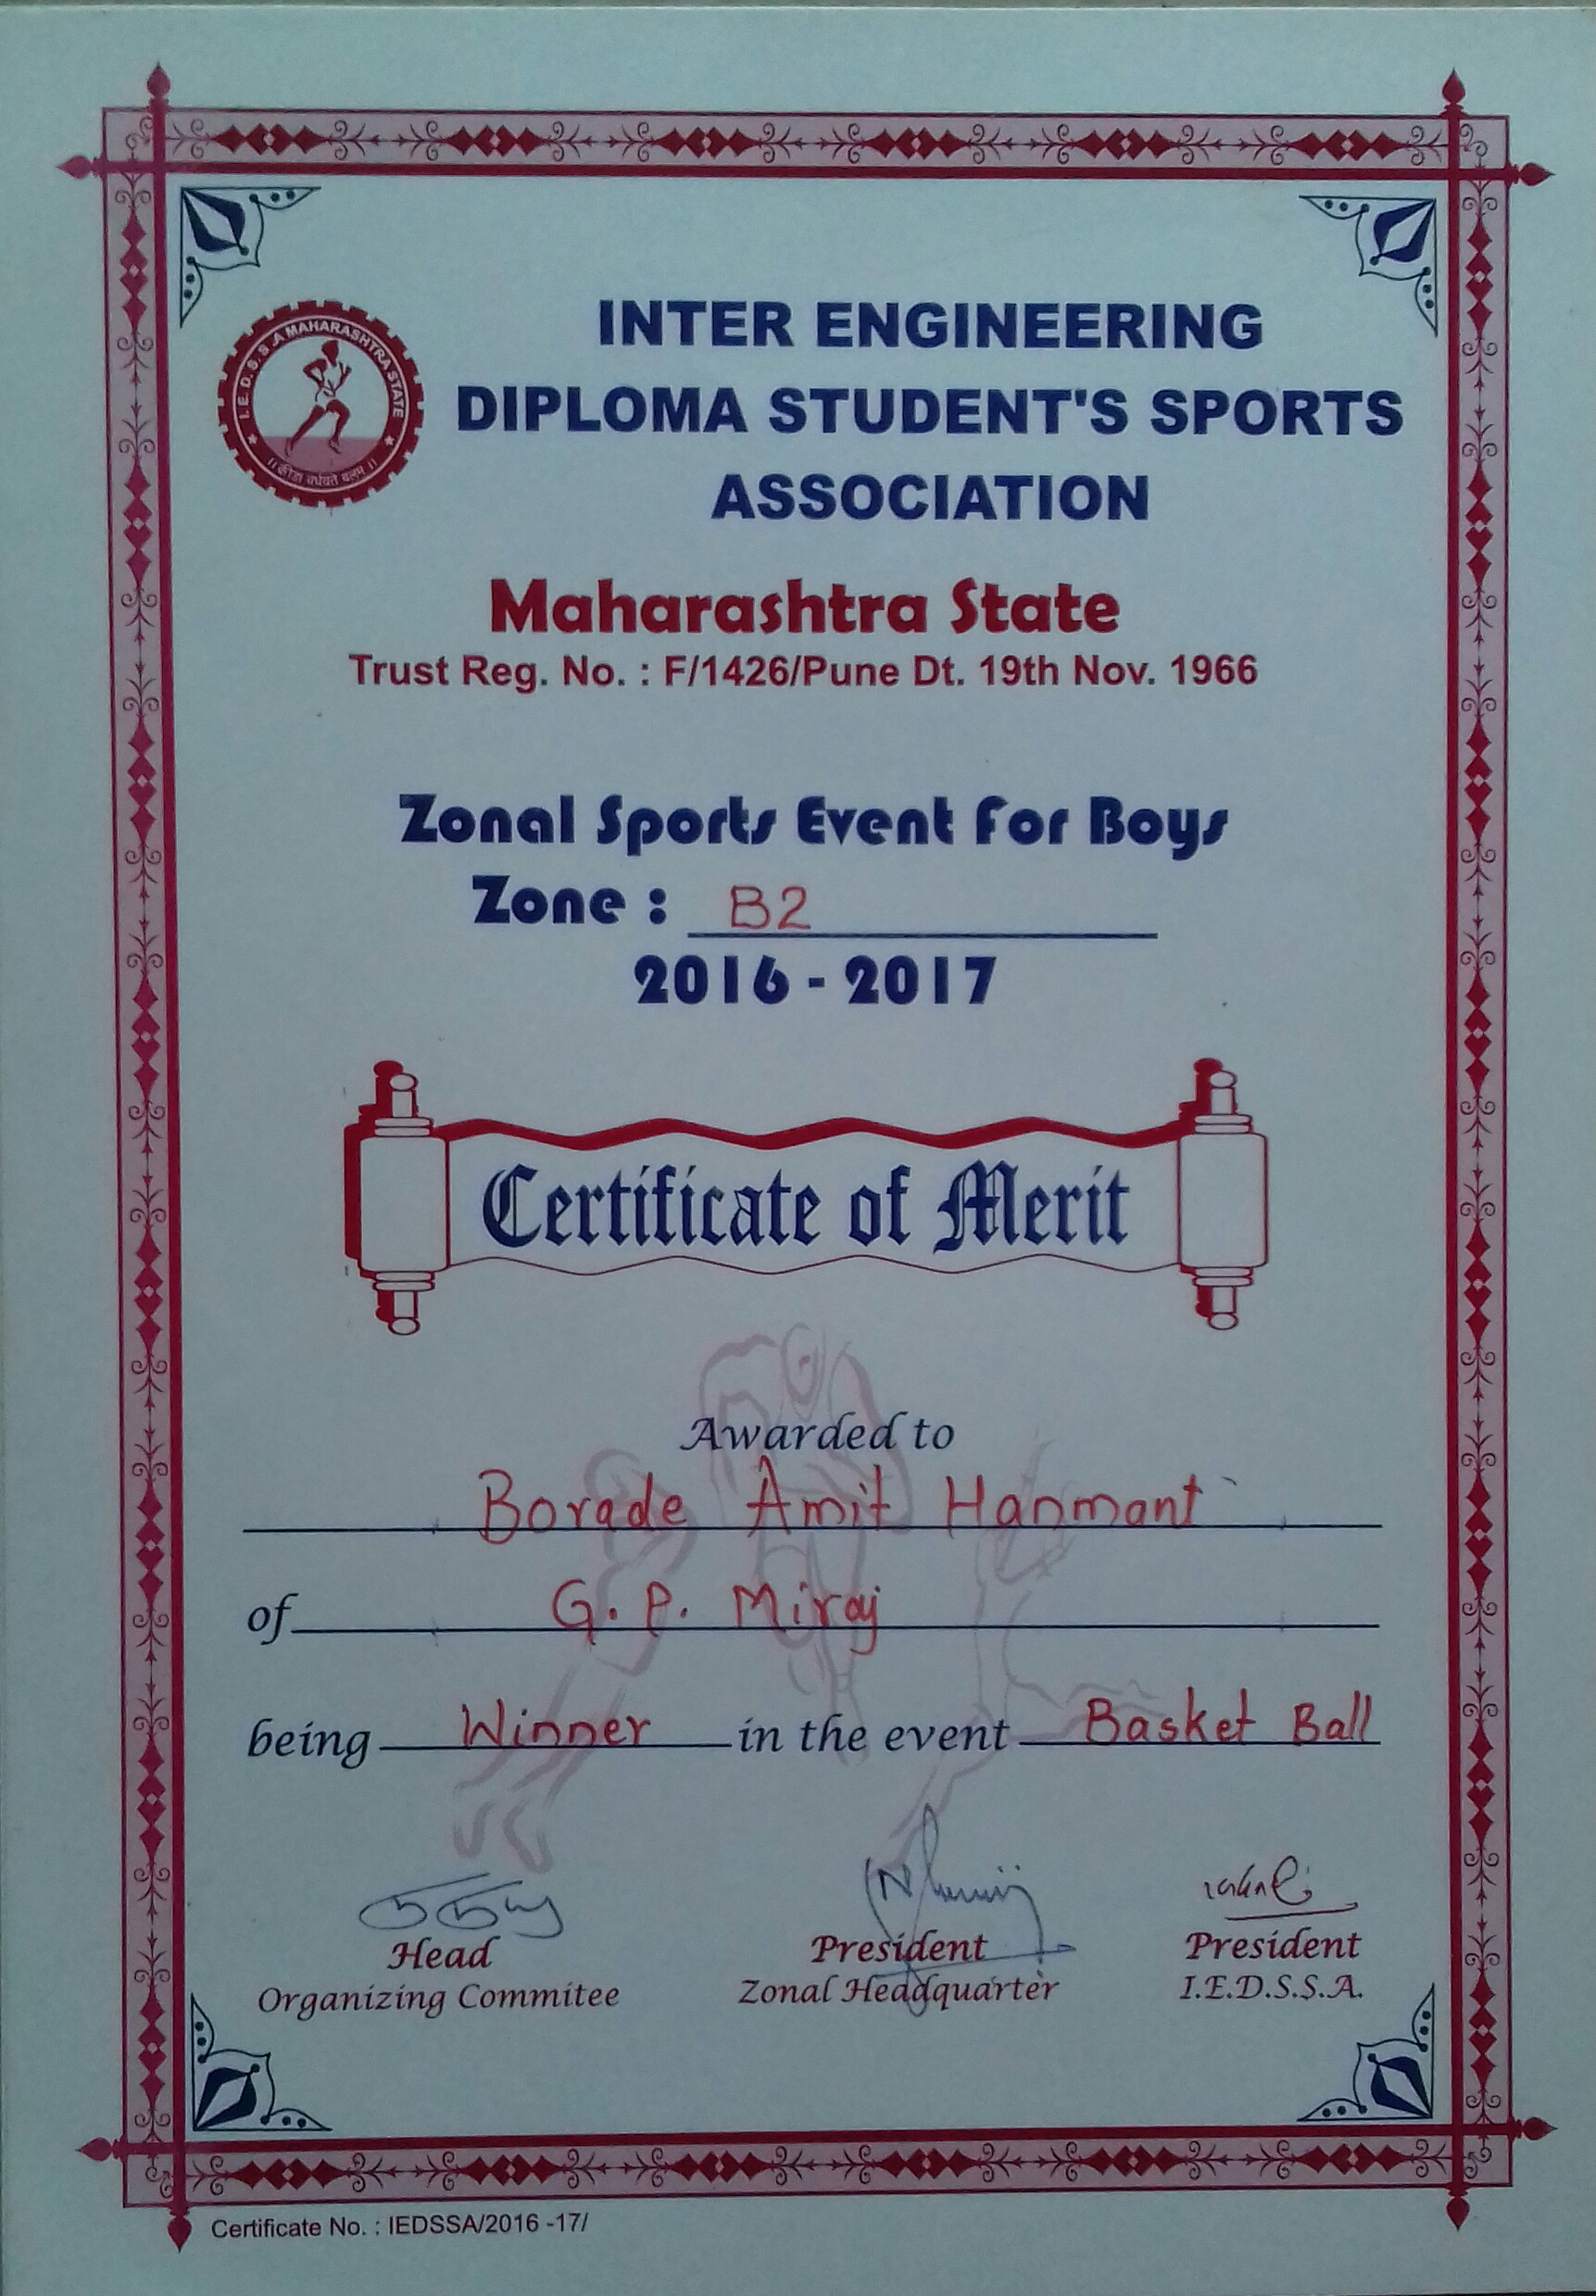 I. E. D. S. S .A MAHARASHTRA STATE
।। क्रीडा वर्धयते बलम् ।।
INTER ENGINEERING
DIPLOMA STUDENT'S SPORTS
ASSOCIATION
Maharashtra State
Trust Reg. No. : F/1426/Pune Dt. 19th Nov. 1966
Zonal Sports Event For Boys
Zone : B2
2016 - 2017
Certificate of Merit
Awarded to
Borade Amit Hanmant
of G. P. Miraj
being Winner in the event Basket Ball
Head President President
Organizing Commitee Zonal Headquarter I.E.D.S.S.A.
Certificate No. : IEDSSA/2016 -17/